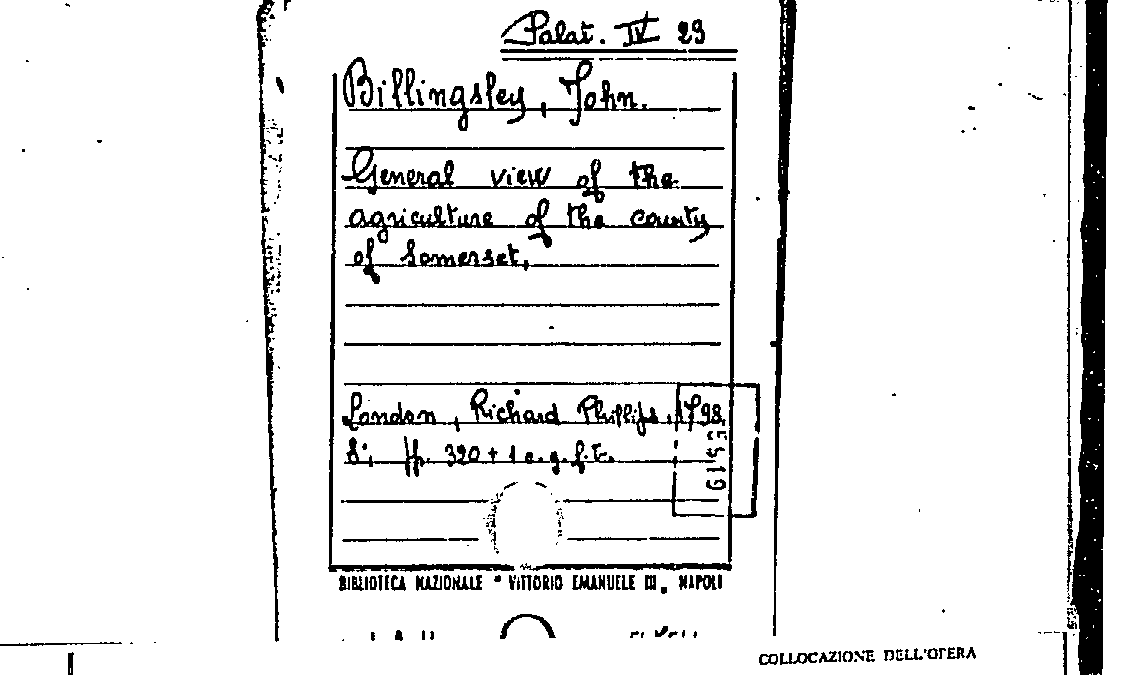 Palat. IV 29
Billingsley, John.
General view of the
agriculture of the county
of Somerset,
London, Richard Phillips, 1798
8°, pp. 320 + 1 c. g. f. t.
BIBLIOTECA NAZIONALE "VITTORIO EMANUELE III„ NAPOLI
COLLOCAZIONE DELL'OPERA